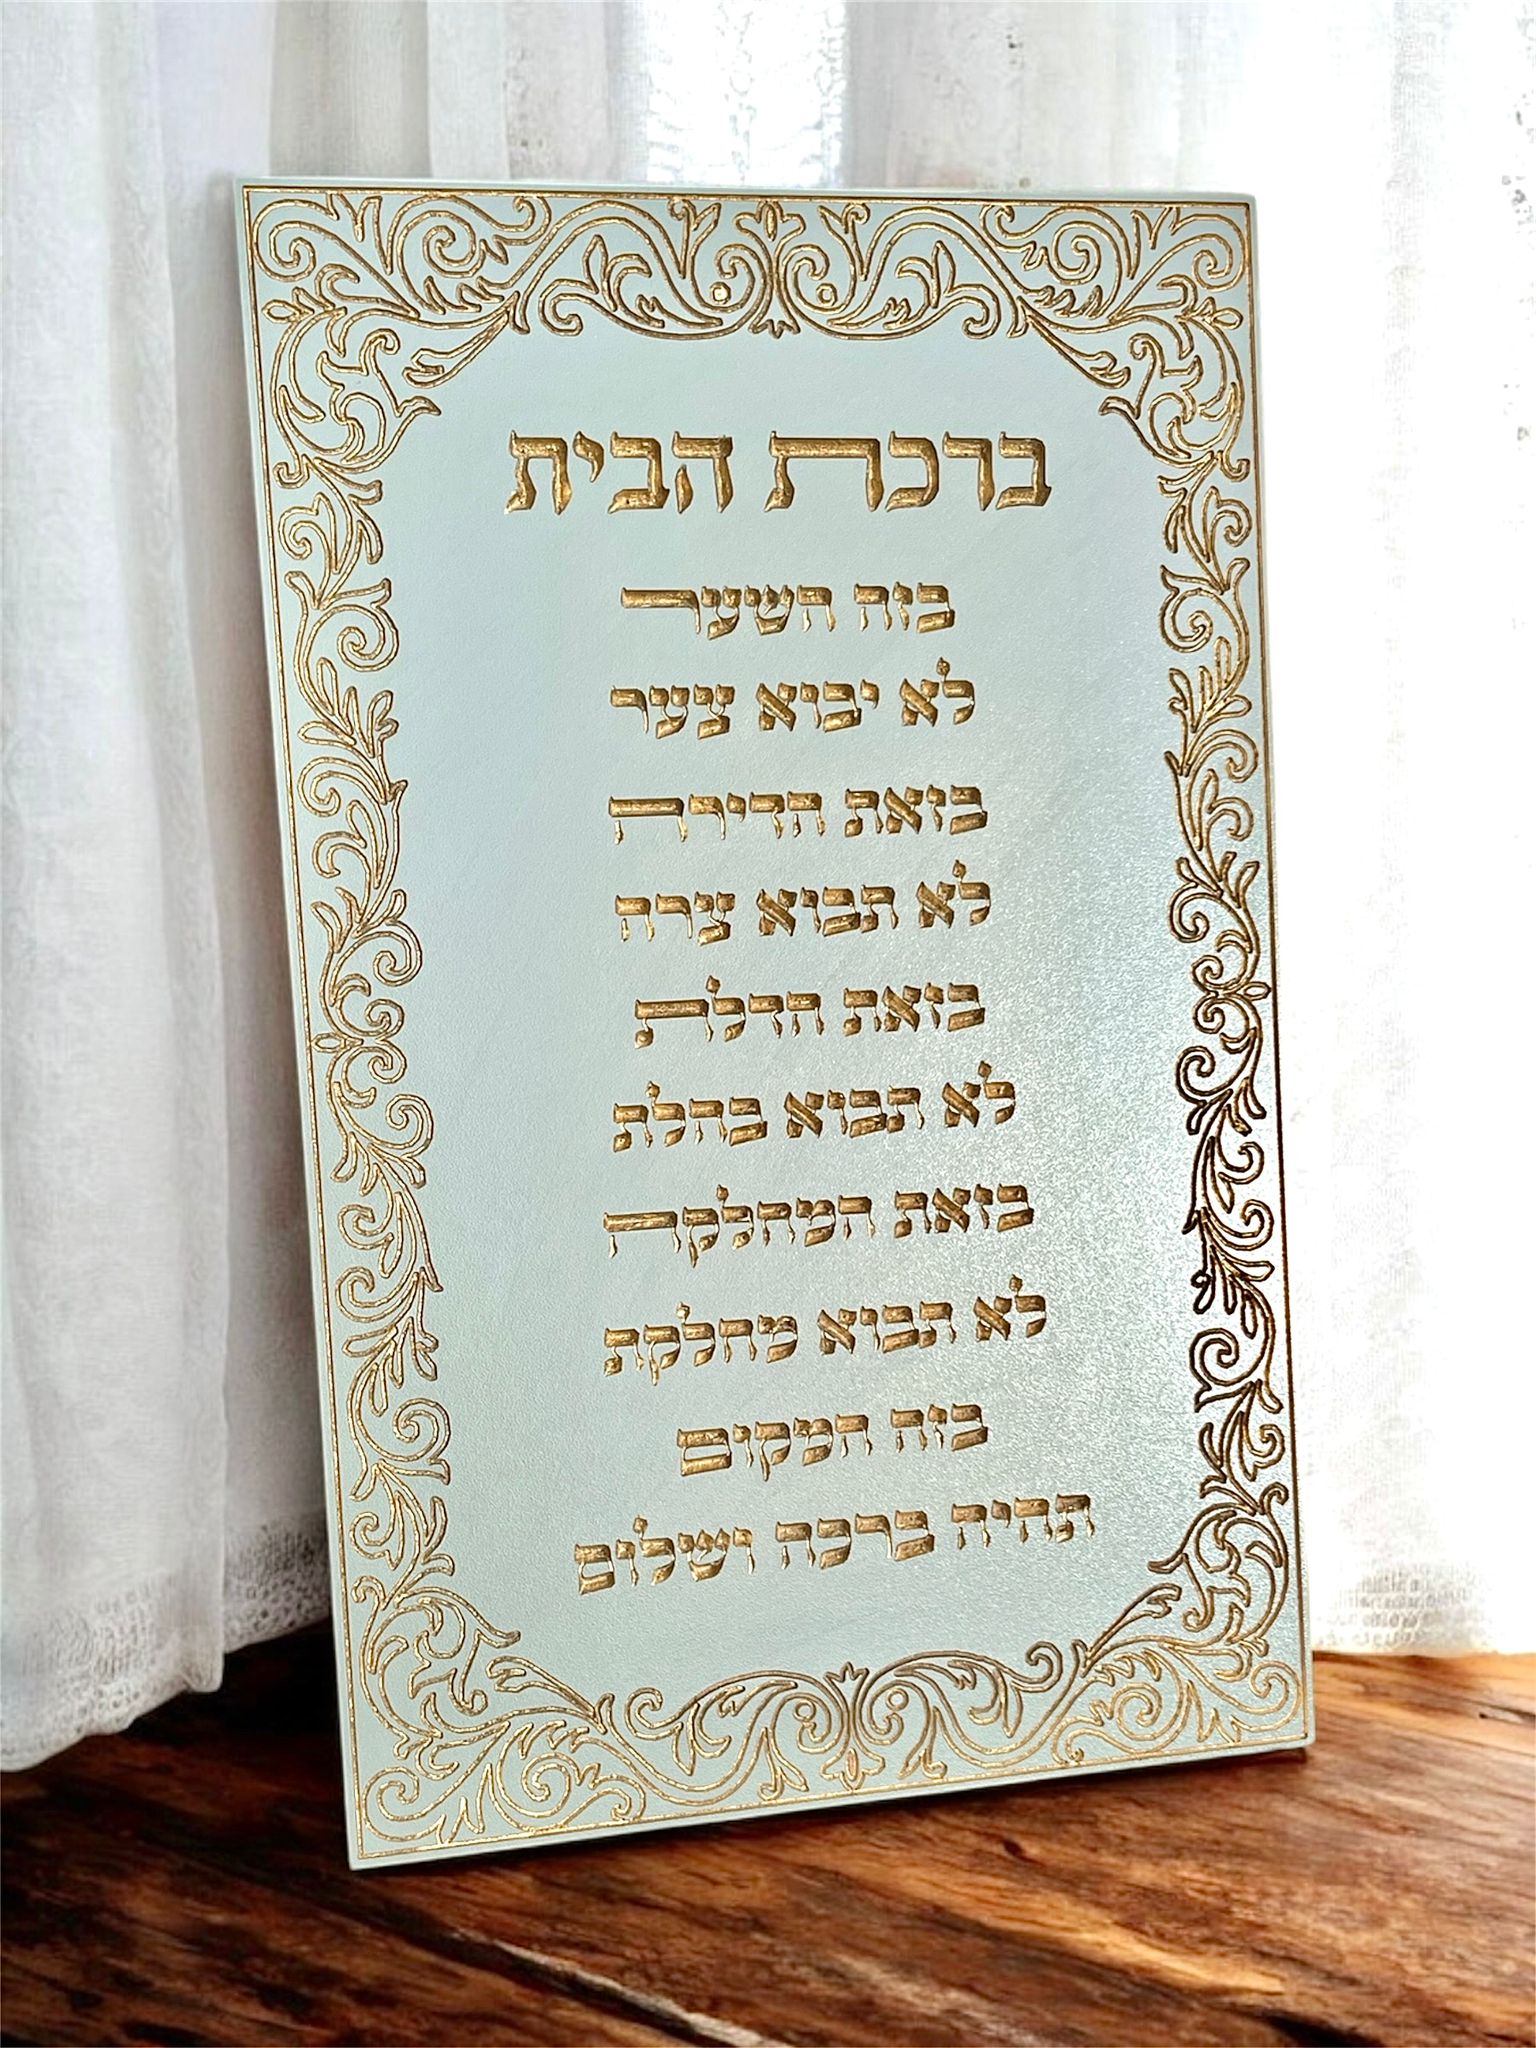 ברכת הבית
בזה השער
לא יבוא צער
בזאת הדירה
לא תבוא צרה
בזאת הדלת
לא תבוא בהלת
בזאת המחלקה
לא תבוא מחלקת
בזה המקום
תהיה ברכה ושלום